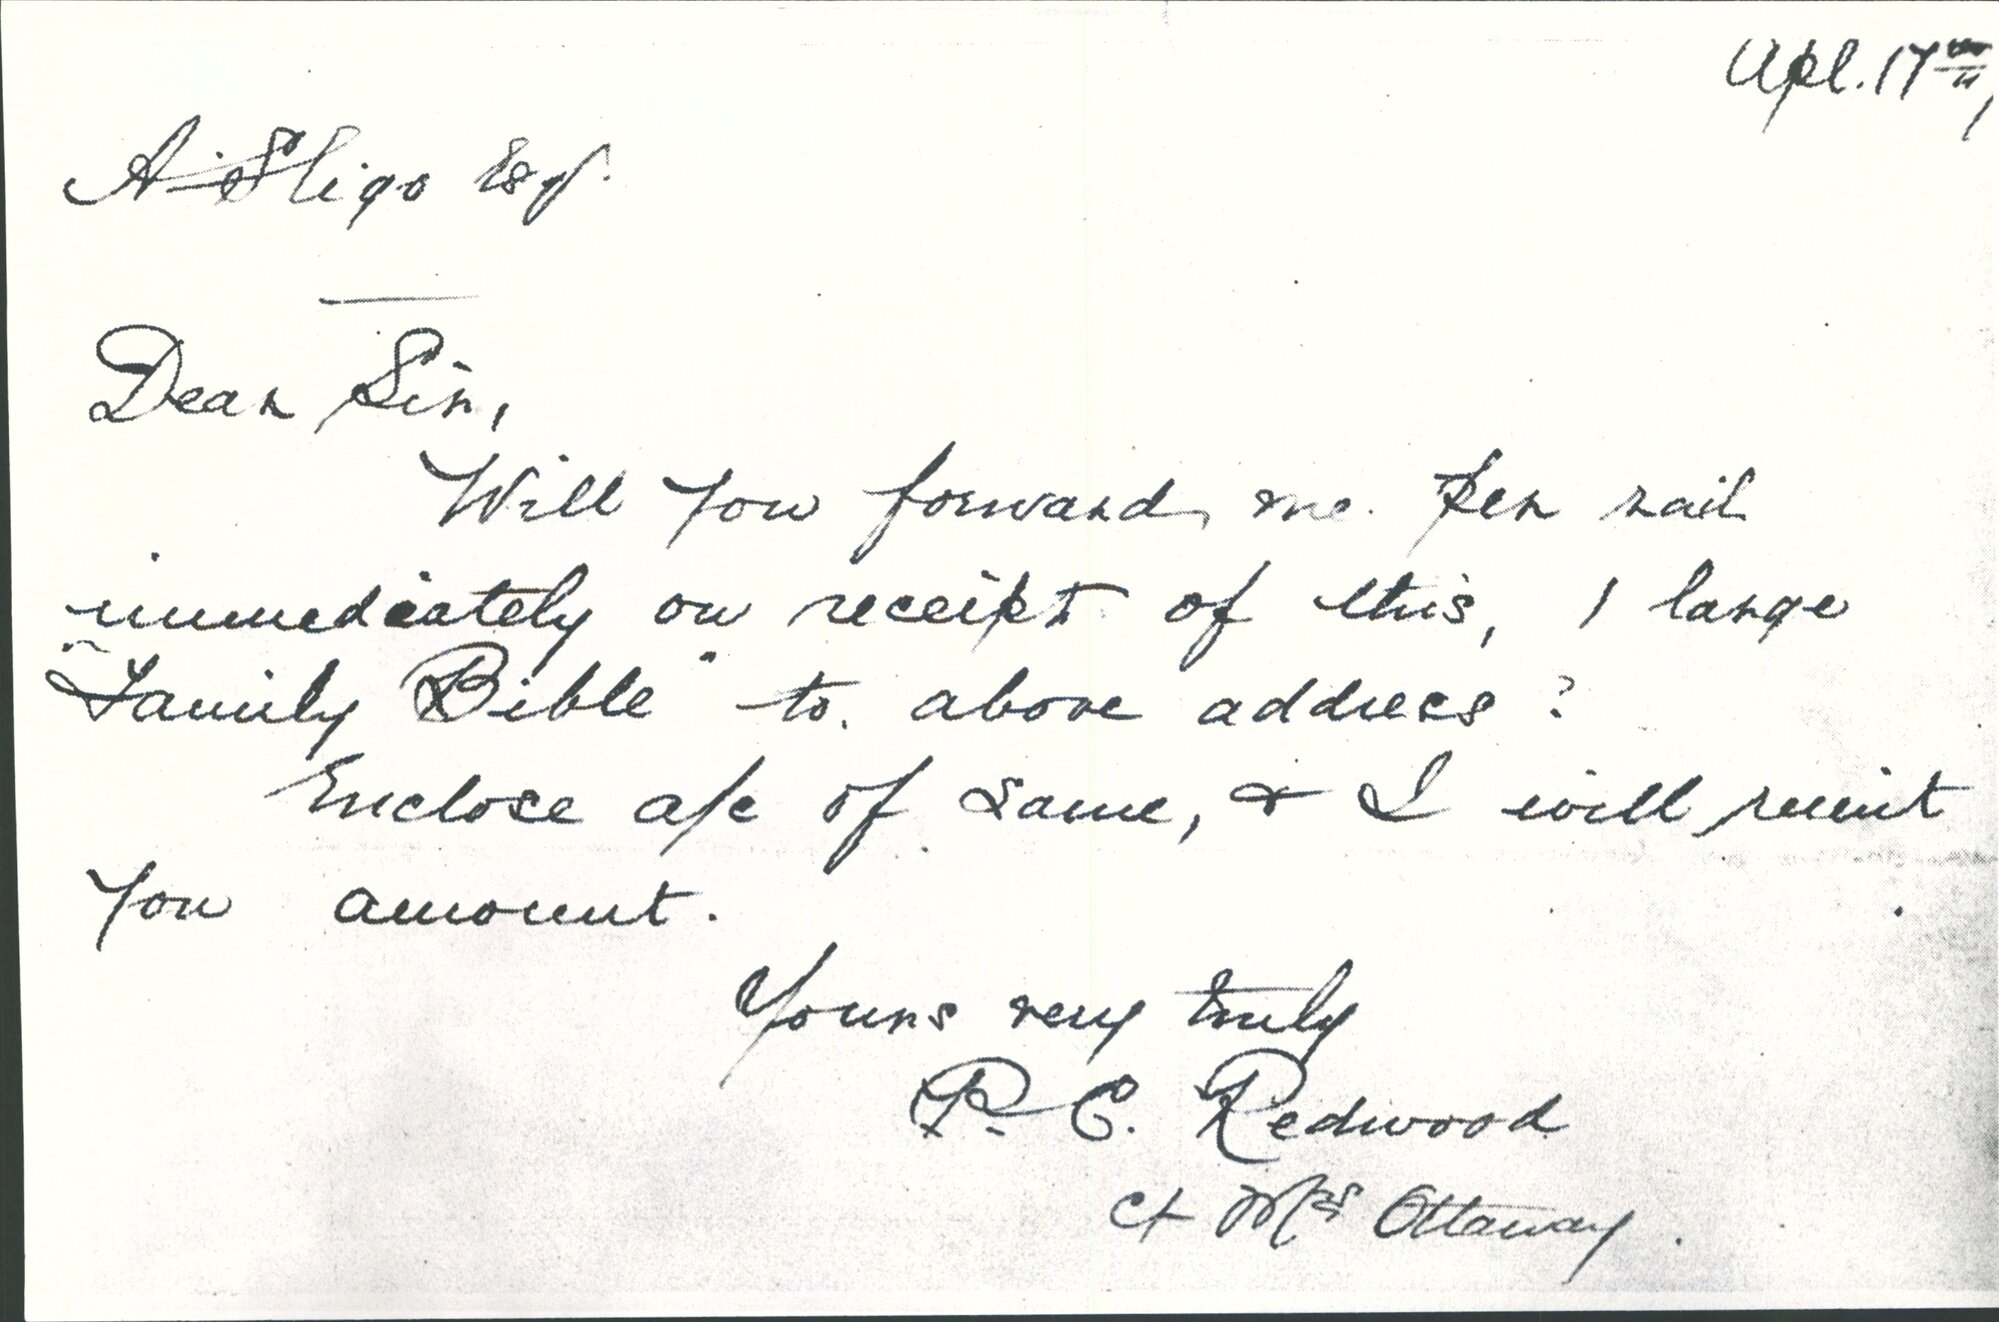 Apl. 17th
A. Sligo Esq.
Dear Sir,
Will you forward me per rail
immediately on receipt of this, 1 large
"Family Bible" to above address?
Enclose a/c of same, & I will remit
you amount.
Yours very truly
P. C. Redwood
Mrs Ottaway.